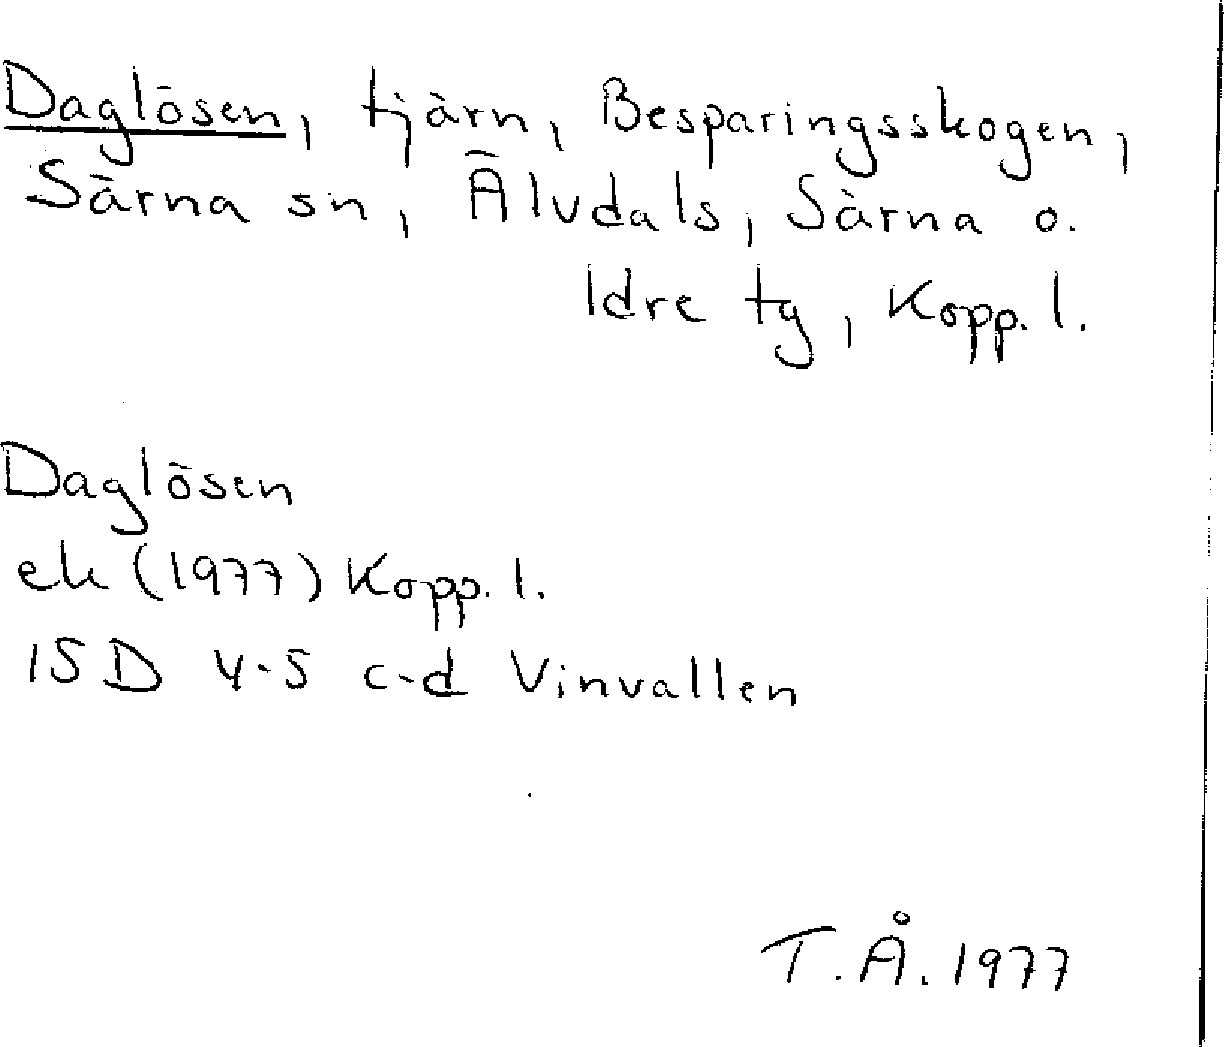 Daglösen, tjärn, Besparingsskogen,
Särna sn, Älvdals, Särna o.
Idre tg, Kopp. l.
Daglösen
ek (1977) Kopp. l.
15 D 4-5 c-d Vinvallen
T.Å. 1977